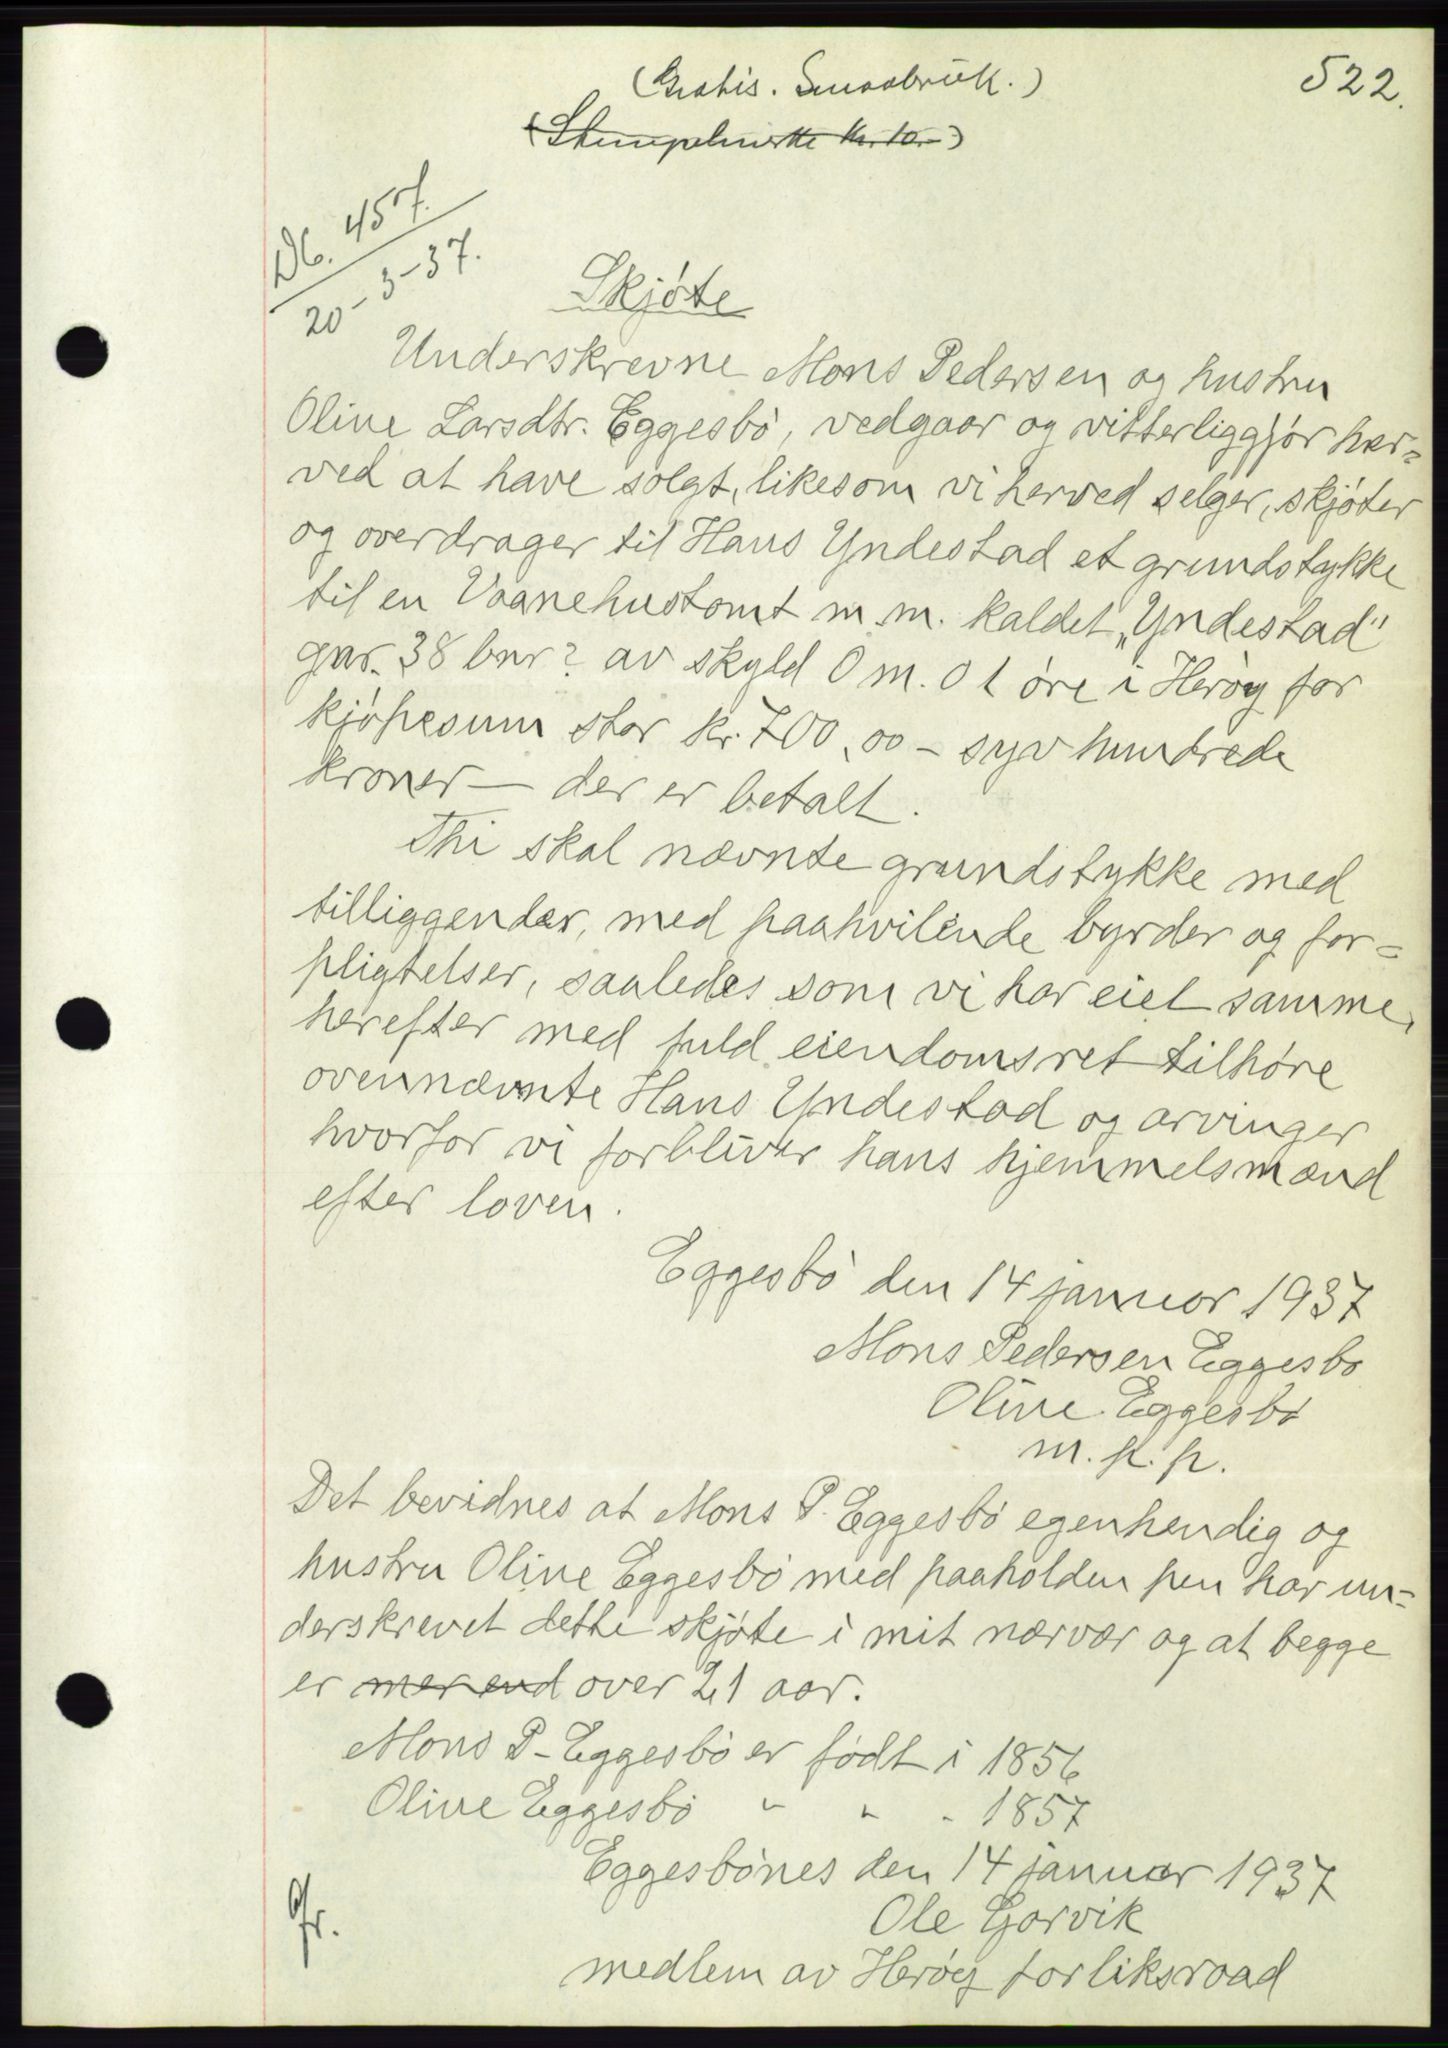 522.
(Gratis. Smaabruk.)
(Stempelmerke kr. 10.-)
Db. 457.
20-3-37.
Skjøte
Underskrevne Mons Pedersen og hustru
Oline Larsdtr. Eggesbø, vedgaar og vitterliggjør her=
ved at have solgt, likesom vi herved selger, skjøter
og overdrager til Hans Yndestad et grundstykke
til en Vaanehustomt m.m. kaldet „Yndestad"
gnr. 38 bnr ? av skyld 0 m. 01 øre i Herøy for
kjøpesum stor kr. 700,00 - syv hundrede
kroner - der er betalt.
Thi skal nævnte grundstykke med
tilliggender, med paahvilende byrder og for=
pligtelser, saaledes som vi har eiet samme,
herefter med fuld eiendomsret tilhøre
ovennævnte Hans Yndestad og arvinger
hvorfor vi forbliver hans hjemmelsmænd
efter loven.
Eggesbø den 14 januar 1937
Mons Pedersen Eggesbø
Oline Eggesbø
m. p. p.
Det bevidnes at Mons P. Eggesbø egenhendig og
hustru Oline Eggesbø med paaholden pen har un=
derskrevet dette skjøte i mit nærvær og at begge
er mer end over 21 aar.
Mons P. Eggesbø er født i 1856
Oline Eggesbø " " - 1857
Eggesbønes den 14 januar 1937
Ole Gjorvik
medlem av Herøy forliksraad